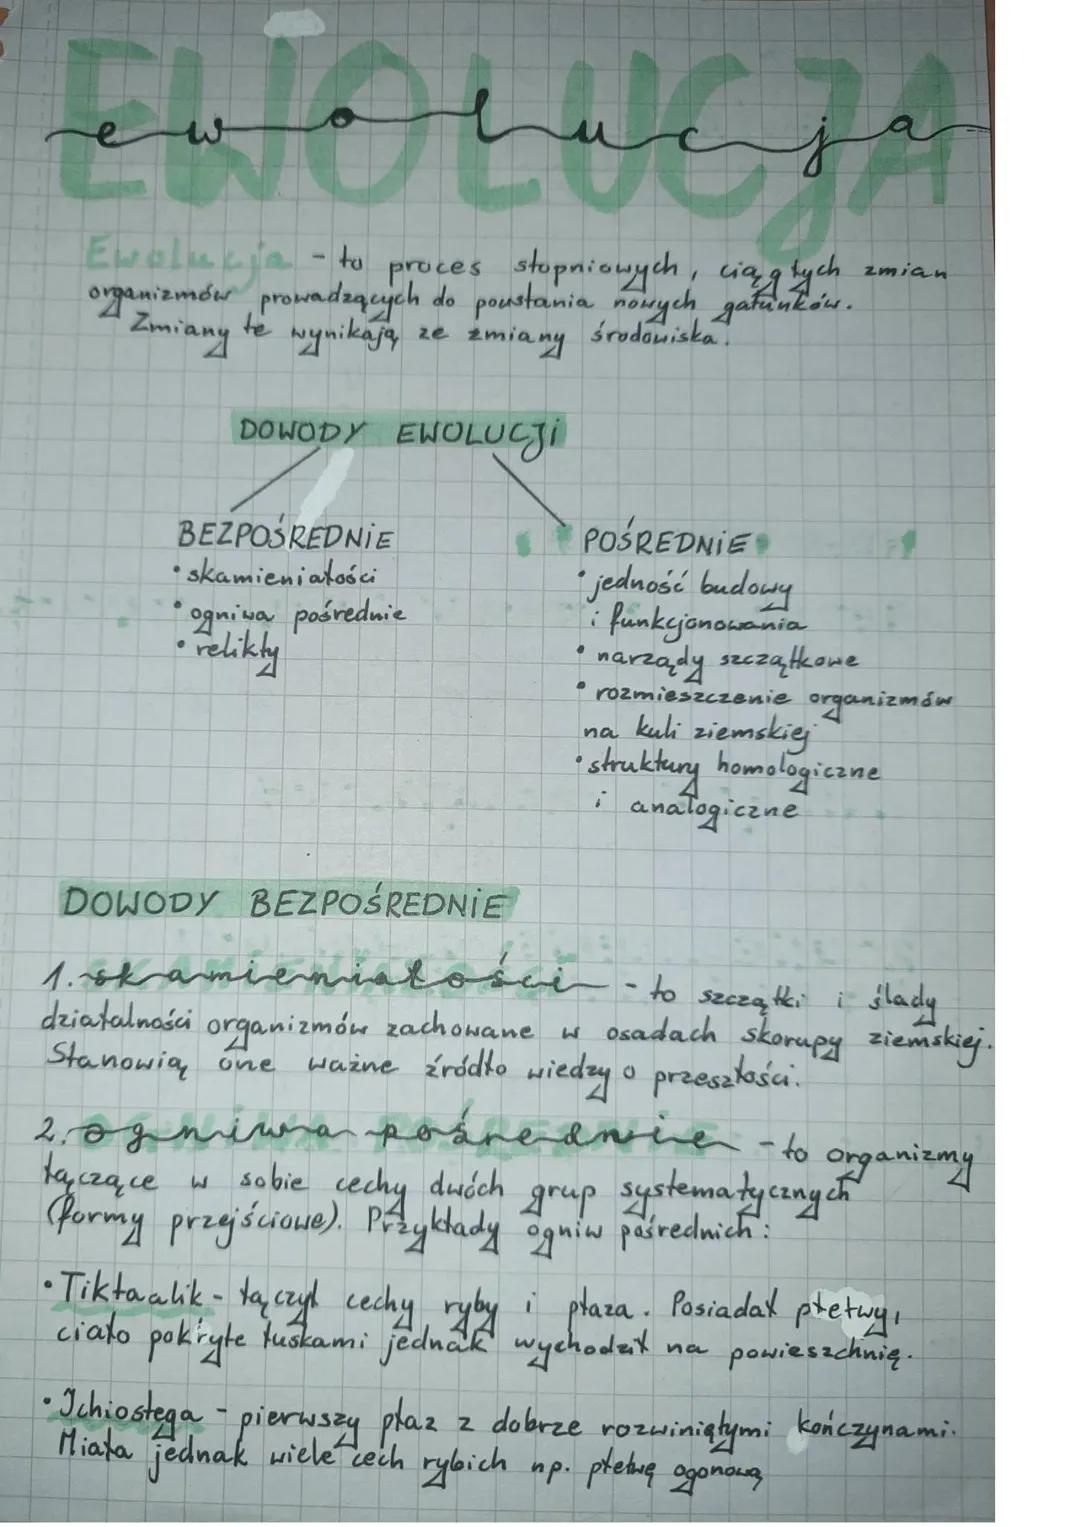 EWOLUCJA
ewolucja
Ewolucja - to proces stopniowych, ciągłych zmian
organizmów prowadzących do powstania nowych gatunków.
Zmiany te wynikają ze zmiany środowiska.
DOWODY EWOLUCJI
BEZPOŚREDNIE
• skamieniałości
• ogniwa pośrednie
• relikty
POŚREDNIE
• jedność budowy
i funkcjonowania
• narządy szczątkowe
• rozmieszczenie organizmów
na kuli ziemskiej
• struktury homologiczne
i analogiczne
DOWODY BEZPOŚREDNIE
1. skamieniałości - to szczątki i ślady
działalności organizmów zachowane w osadach skorupy ziemskiej.
Stanowią one ważne źródło wiedzy o przeszłości.
2. ogniwa pośrednie - to organizmy
łączące w sobie cechy dwóch grup systematycznych
(formy przejściowe). Przykłady ogniw pośrednich:
• Tiktaalik - łączył cechy ryby i płaza. Posiadał płetwy,
ciało pokryte łuskami jednak wychodził na powieszchnię.
• Ichiostega - pierwszy płaz z dobrze rozwiniętymi kończynami.
Miała jednak wiele cech rybich np. płetwę ogonową